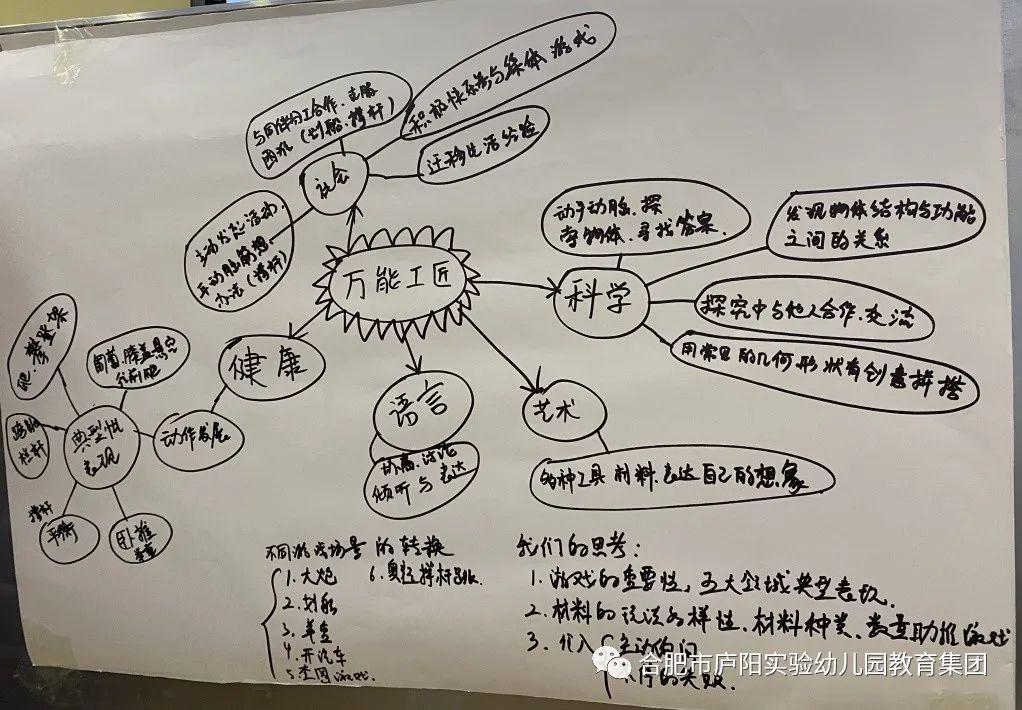 与同伴分工合作、克服
困难（划船、撑杆）
积极快乐参与集体游戏
迁移生活经验
社会
主动发起活动，
手动脑筋想
办法（撑杆）
万能工匠
动手动脑、探
寻物体、寻找答案.
发现物体结构与功能
之间的关系
科学
探究中与他人合作、交流
用常见的几何形状有创意拼搭
健康
爬、攀登架
匍匐、膝盖悬空
向前爬
跨跳
栏杆
典型性
表现
动作发展
撑杆
平衡
卧推
语言
协商、讨论
倾听与表达
艺术
多种工具材料.表达自己的想象
不同游戏场景的转换
1.大炮
6.奥拉撑杆跳.
2.划船
3.
4.开汽车
5.
我们的思考：
1.游戏的重要性，五大领域典型表现.
2.材料的多样性、材料种类、数量助推游戏
3.介入
主动
的失败.
合肥市庐阳实验幼儿园教育集团